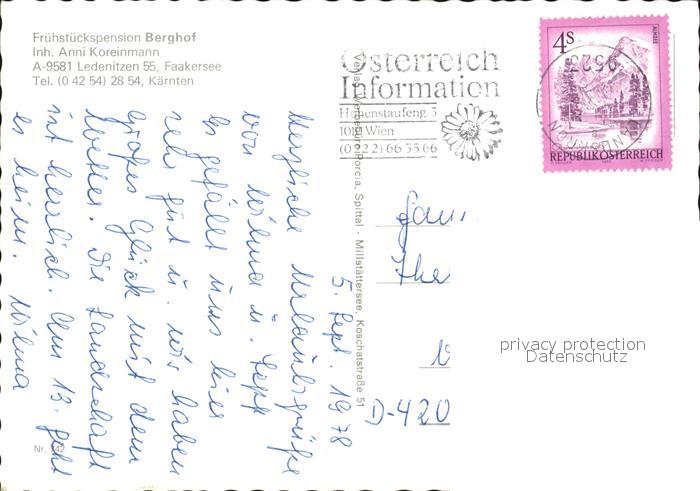 Frühstückspension Berghof
Inh. Anni Koreinmann
A-9581 Ledenitzen 55, Faakersee
Tel. (0 42 54) 28 54, Kärnten
Österreich
Information
Hohenstaufeng. 3
1010 Wien
(0 22 2) 66 35 66
4S
ALMSEE
9523
REPUBLIK ÖSTERREICH
Verlag Porcia, Spittal - Millstättersee, Koschatstraße 51
5. Sept. 1978
Herzliche Urlaubsgrüße
von Wilma u. Sepp
Es gefällt uns hier
sehr gut u. wir haben
großes Glück mit dem
Wetter. Die Landschaft
ist herrlich. Am 13. geht
es heim. Wilma
Fam.
The
D-420
privacy protection
Datenschutz
Nr.